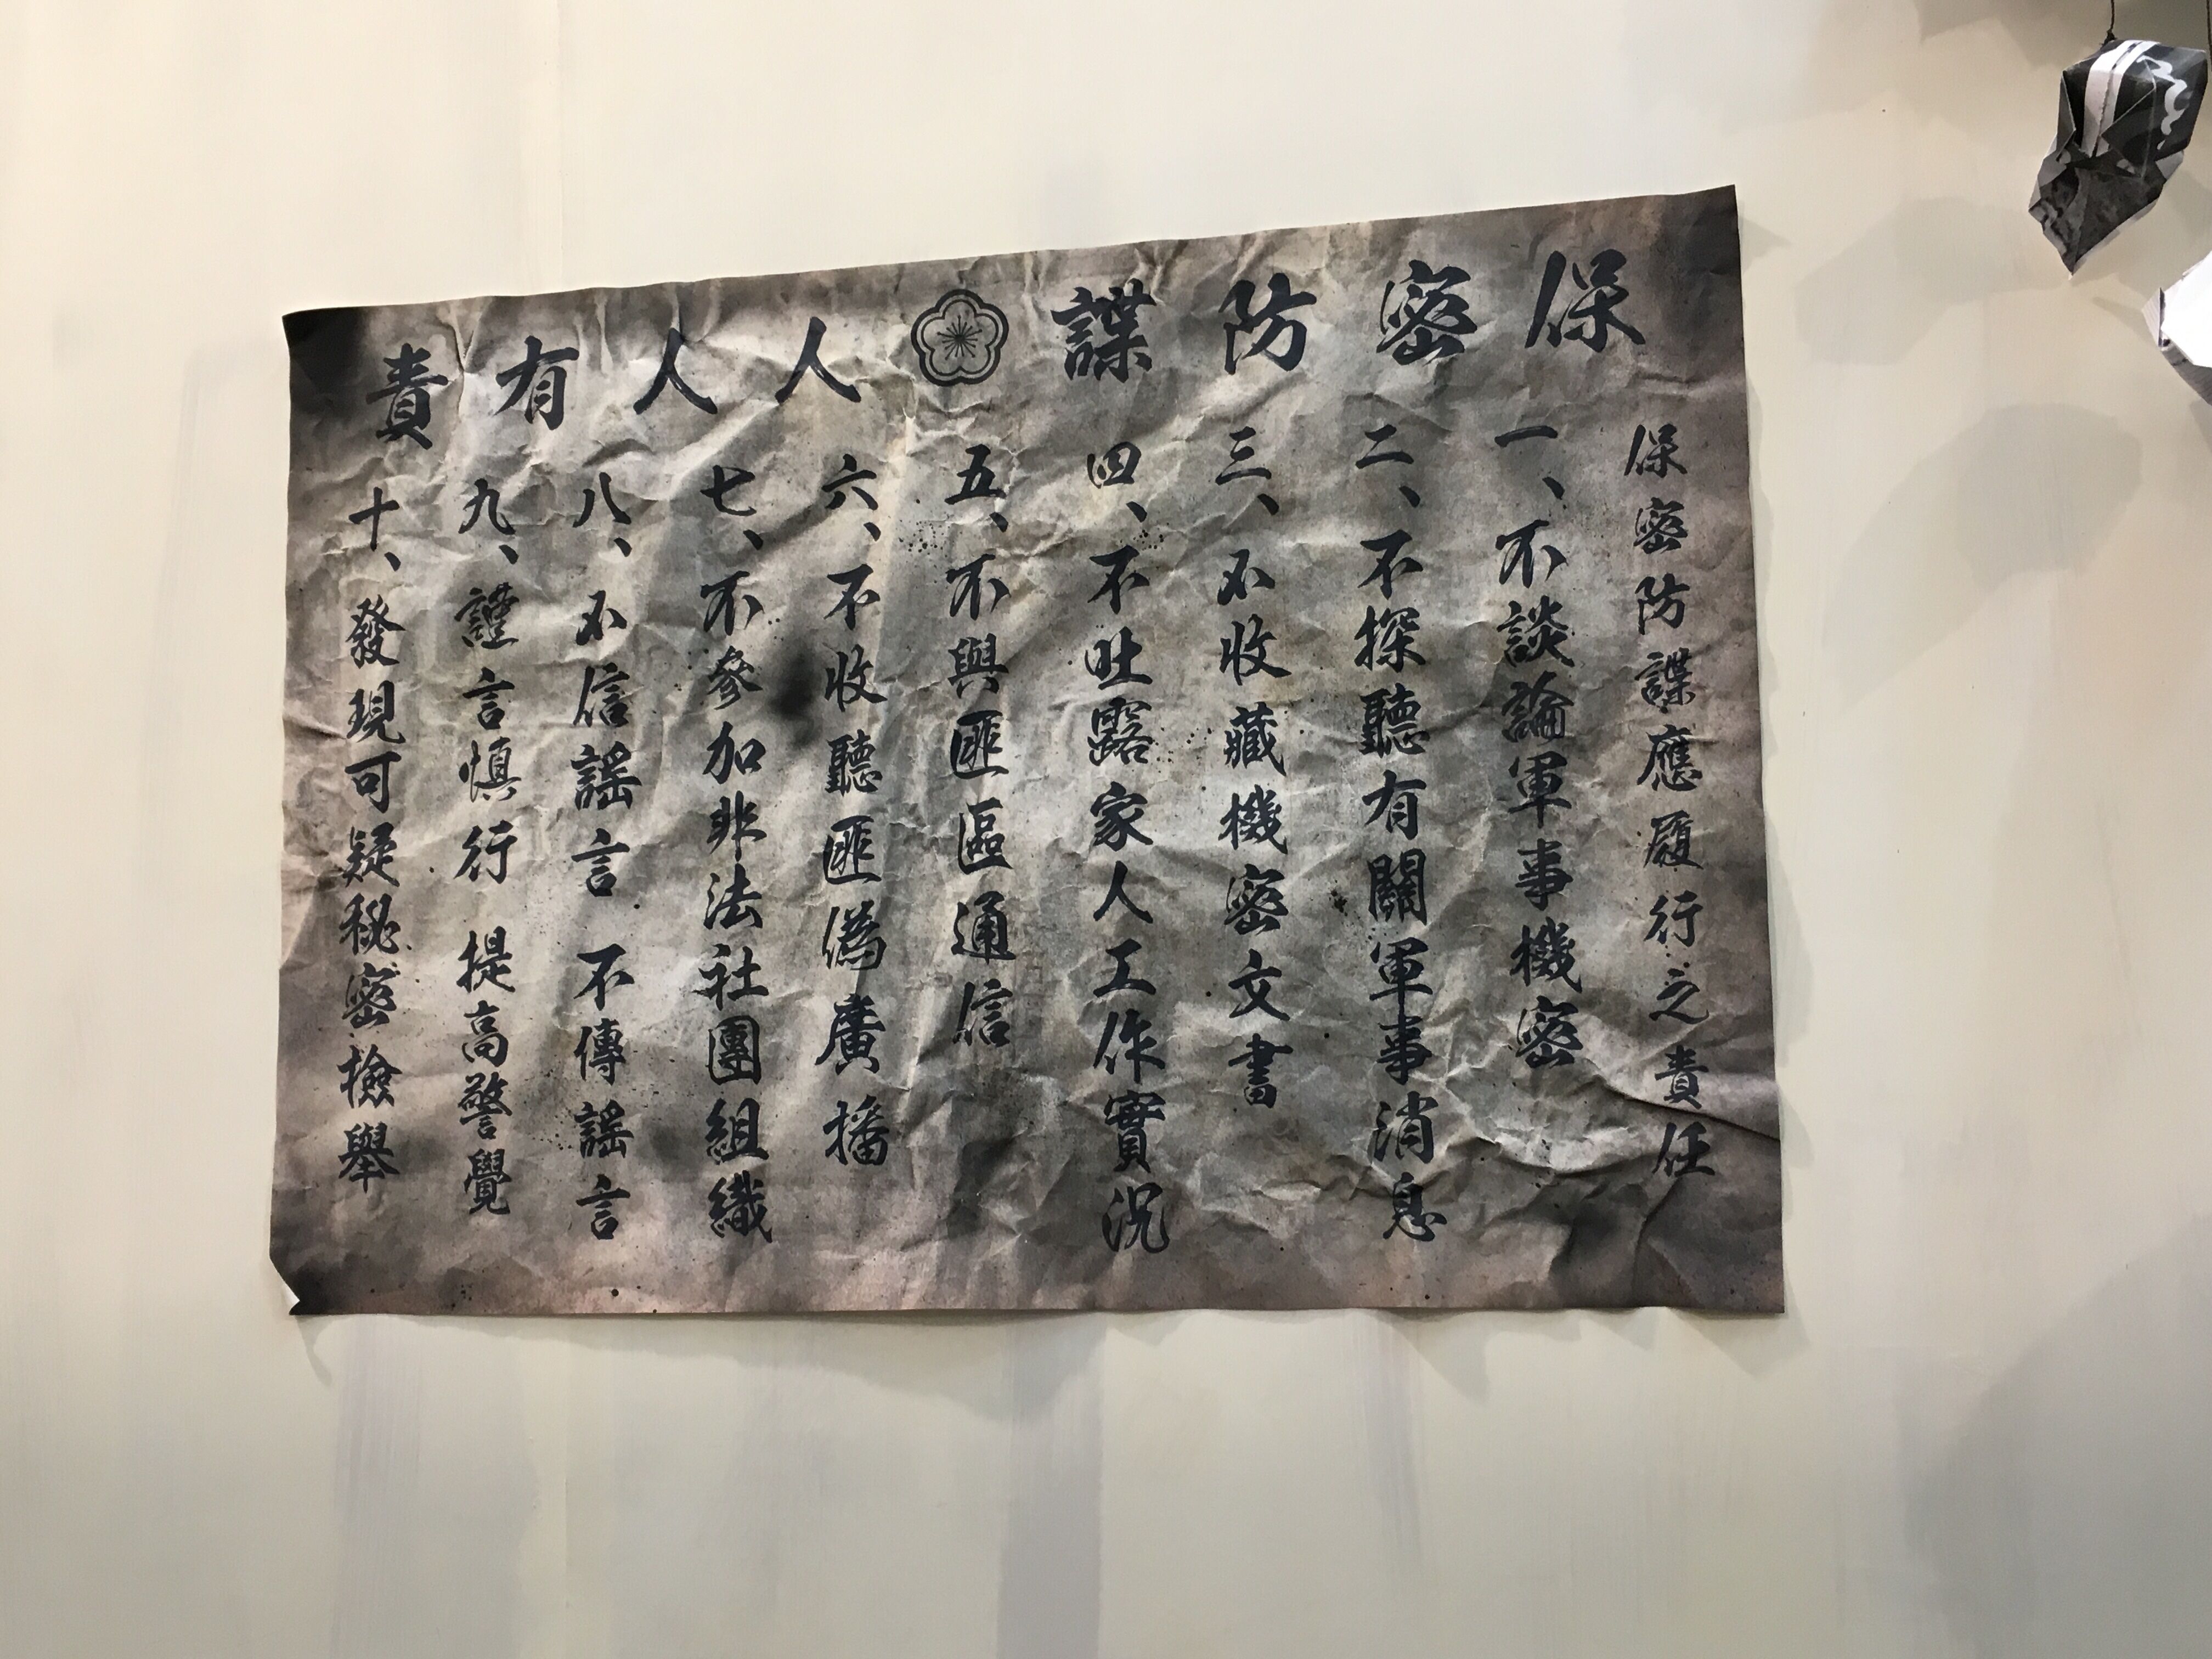 保密防諜 人人有責
保密防諜應履行之責任
一、不談論軍事機密
二、不探聽有關軍事消息
三、不收藏機密文書
四、不吐露家人工作實況
五、不與匪區通信
六、不收聽匪偽廣播
七、不參加非法社團組織
八、不信謠言 不傳謠言
九、謹言慎行 提高警覺
十、發現可疑秘密檢舉